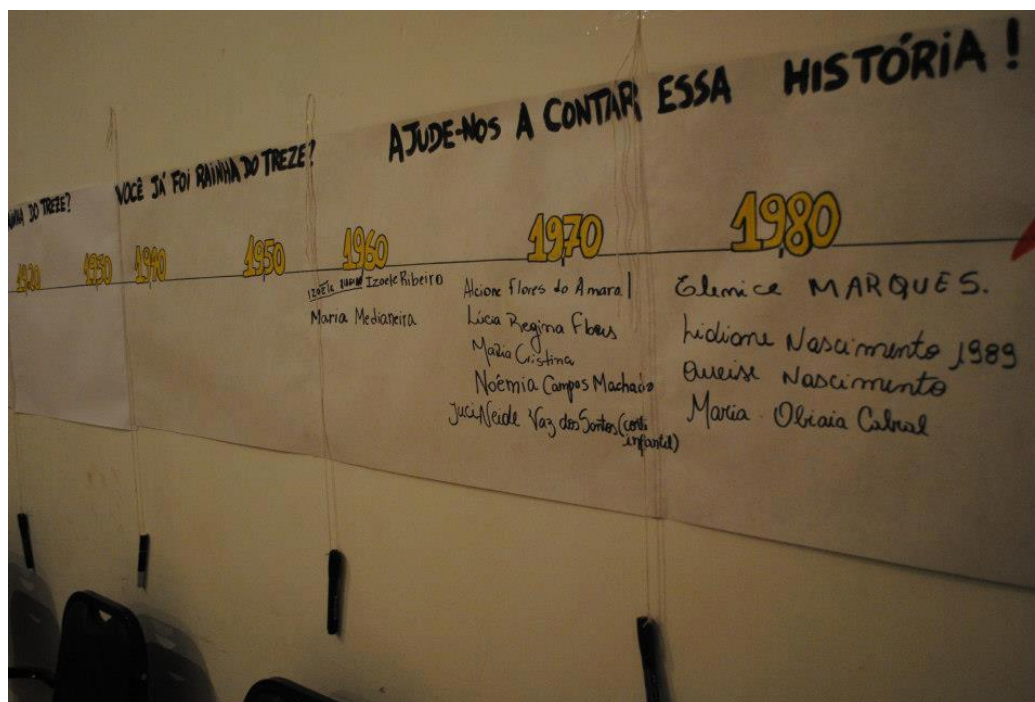 DO TREZE?
VOCÊ JÁ FOI RAINHA DO TREZE?
AJUDE-NOS A CONTAR ESSA HISTÓRIA!
1920
1930
1940
1950
1960
1970
1980
Izoele Ribeiro
Maria Medianeira
Alcione Flores do Amaral
Lúcia Regina Flores
Maria Cristina
Noêmia Campos Machado
JuciNeide Vaz dos Santos (corte
infantil)
Elenice MARQUES.
Lidiane Nascimento 1989
Queise Nascimento
Maria Obiaia Cabral